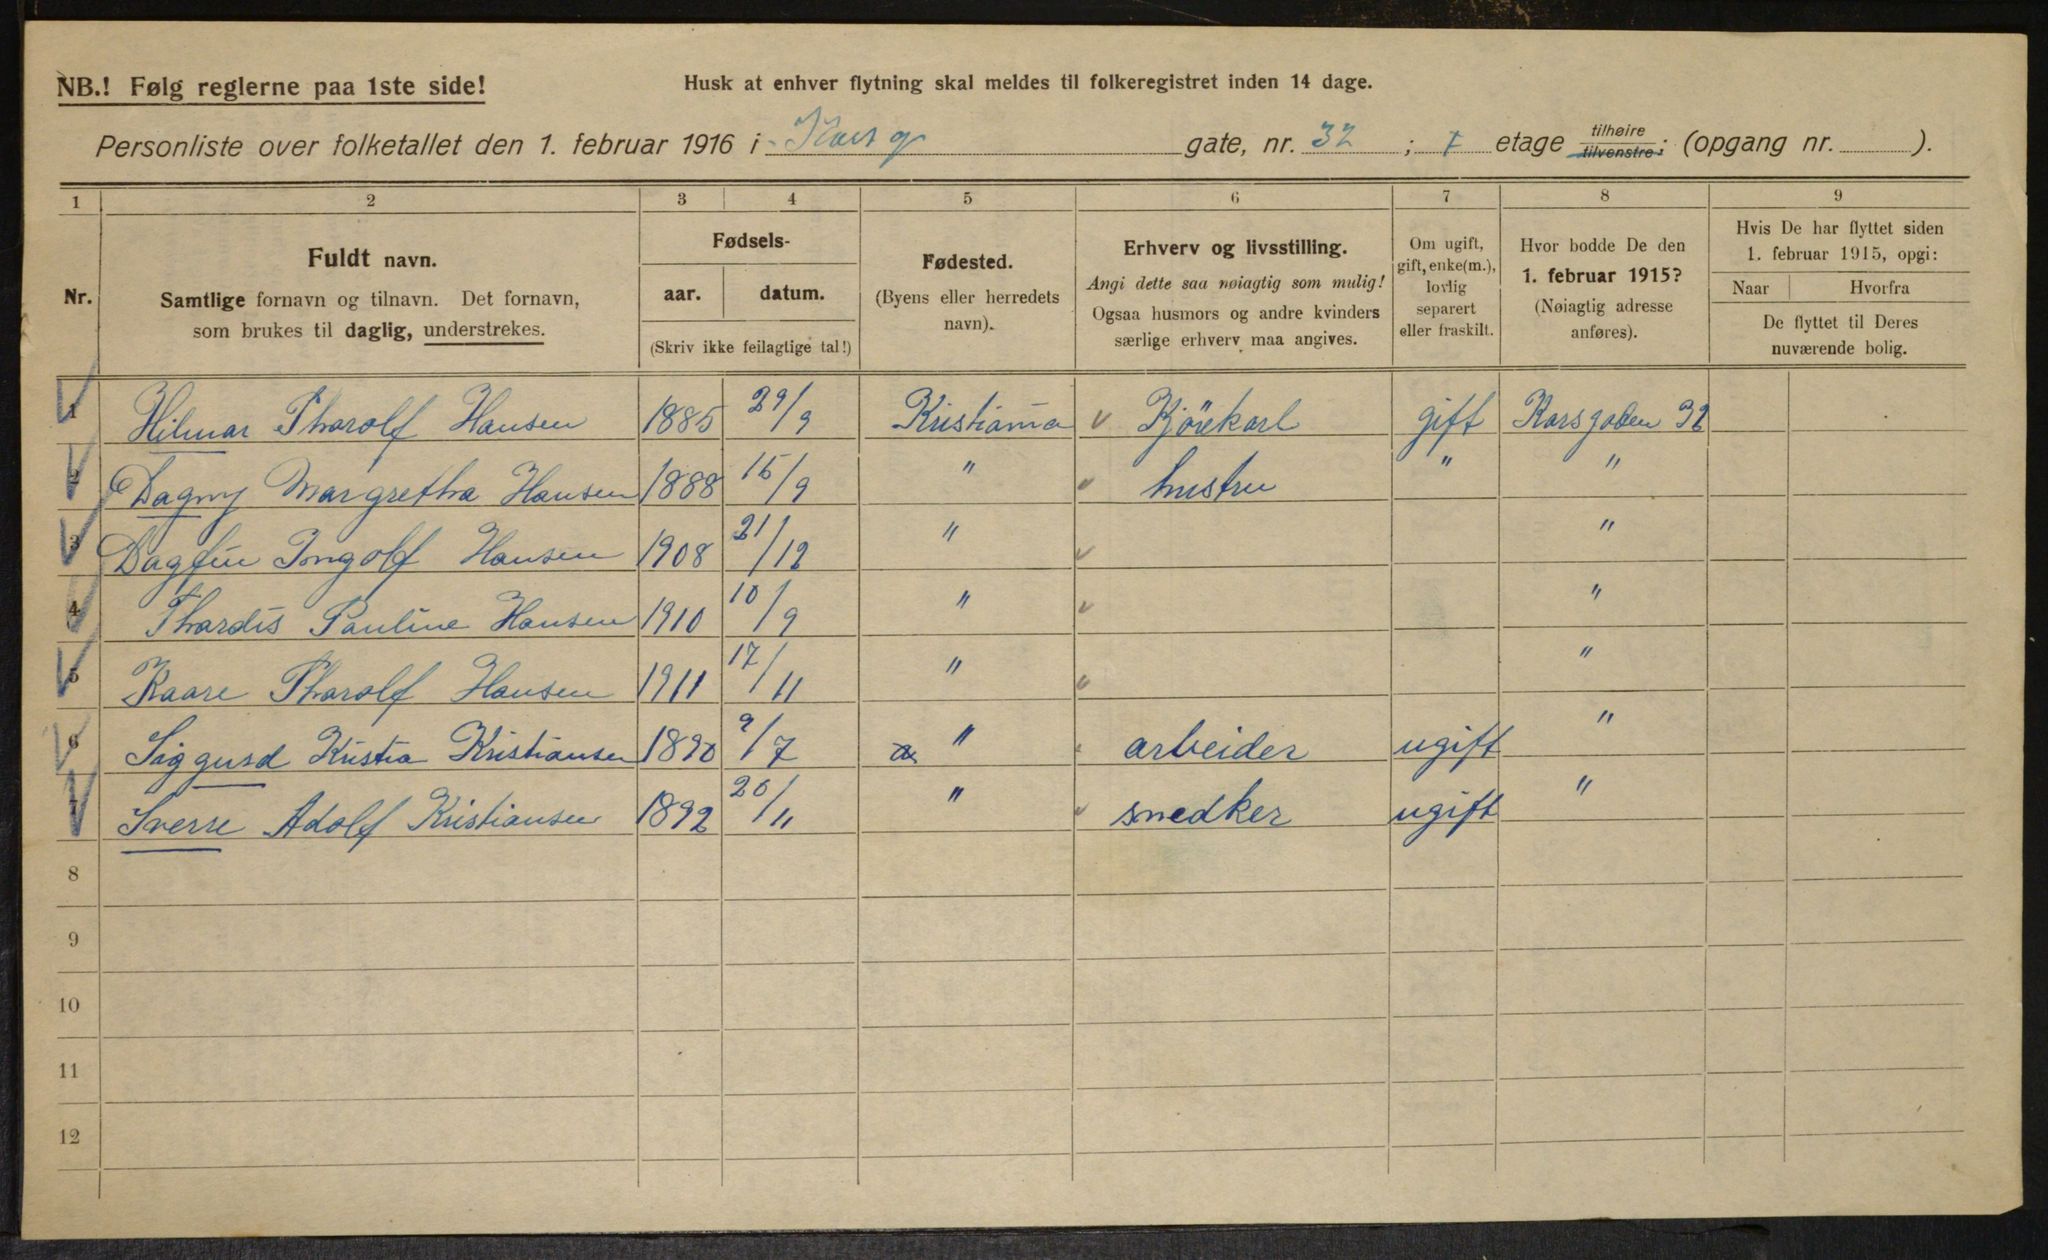 NB.! Følg reglerne paa 1ste side!
Husk at enhver flytning skal meldes til folkeregistret inden 14 dage.
Personliste over folketallet den 1. februar 1916 i Kors g gate, nr. 32 ; I etage tilhøire tilvenstre; (opgang nr. ).
1 2 3 4 5 6 7 8 9
Nr.
Fuldt navn.
Samtlige fornavn og tilnavn. Det fornavn,
som brukes til daglig, understrekes.
Fødsels-
aar. datum.
(Skriv ikke feilagtige tal!)
Fødested.
(Byens eller herredets
navn).
Erhverv og livsstilling.
Angi dette saa nøiagtig som mulig!
Ogsaa husmors og andre kvinders
særlige erhverv maa angives.
Om ugift,
gift, enke(m.),
lovlig
separert
eller fraskilt.
Hvor bodde De den
1. februar 1915?
(Nøiagtig adresse
anføres).
Hvis De har flyttet siden
1. februar 1915, opgi:
Naar Hvorfra
De flyttet til Deres
nuværende bolig.
1 Hilmar Tharolf Hansen 1885 29/9 Kristiania Kjörekarl gift Korsgaden 32
2 Dagny Margretha Hansen 1888 15/9 " hustru " "
3 Dagfin Ingolf Hansen 1908 21/12 " "
4 Thardis Pauline Hansen 1910 10/9 " "
5 Kaare Tharolf Hansen 1911 17/11 " "
6 Siggurd Kristia Kristiansen 1890 9/7 " arbeider ugift "
7 Sverre Adolf Kristiansen 1892 20/11 " snedker ugift "
8
9
10
11
12